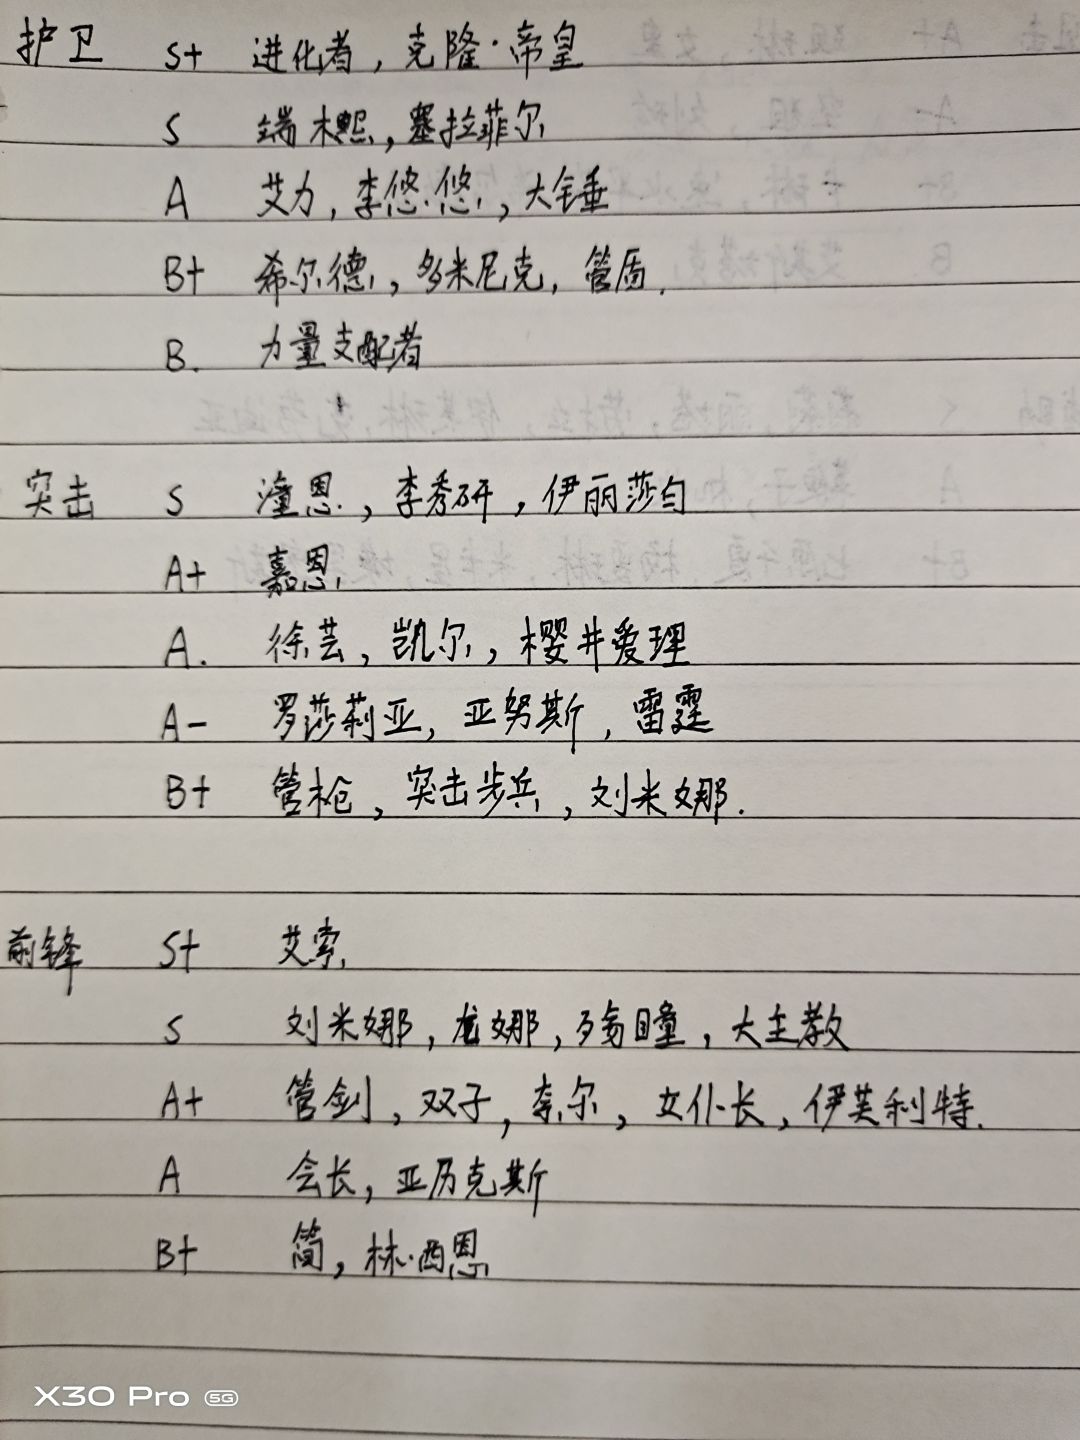 护卫 S+ 进化者，克隆·帝皇
S 端木熙，塞拉菲尔
A 艾力，李悠悠，大锤
B+ 希尔德，多米尼克，管盾.
B. 力量支配者
突击 S 潼恩，李秀研，伊丽莎白
A+ 嘉恩
A. 徐芸，凯尔，樱井爱理
A- 罗莎莉亚，亚努斯，雷霆
B+ 管枪，突击步兵，刘米娜.
前锋 S+ 艾索
S 刘米娜，龙娜，殇瞳，大主教
A+ 管剑，双子，奈尔，女仆长，伊芙利特.
A 会长，亚历克斯
B+ 简，林·西恩
X30 Pro 5G